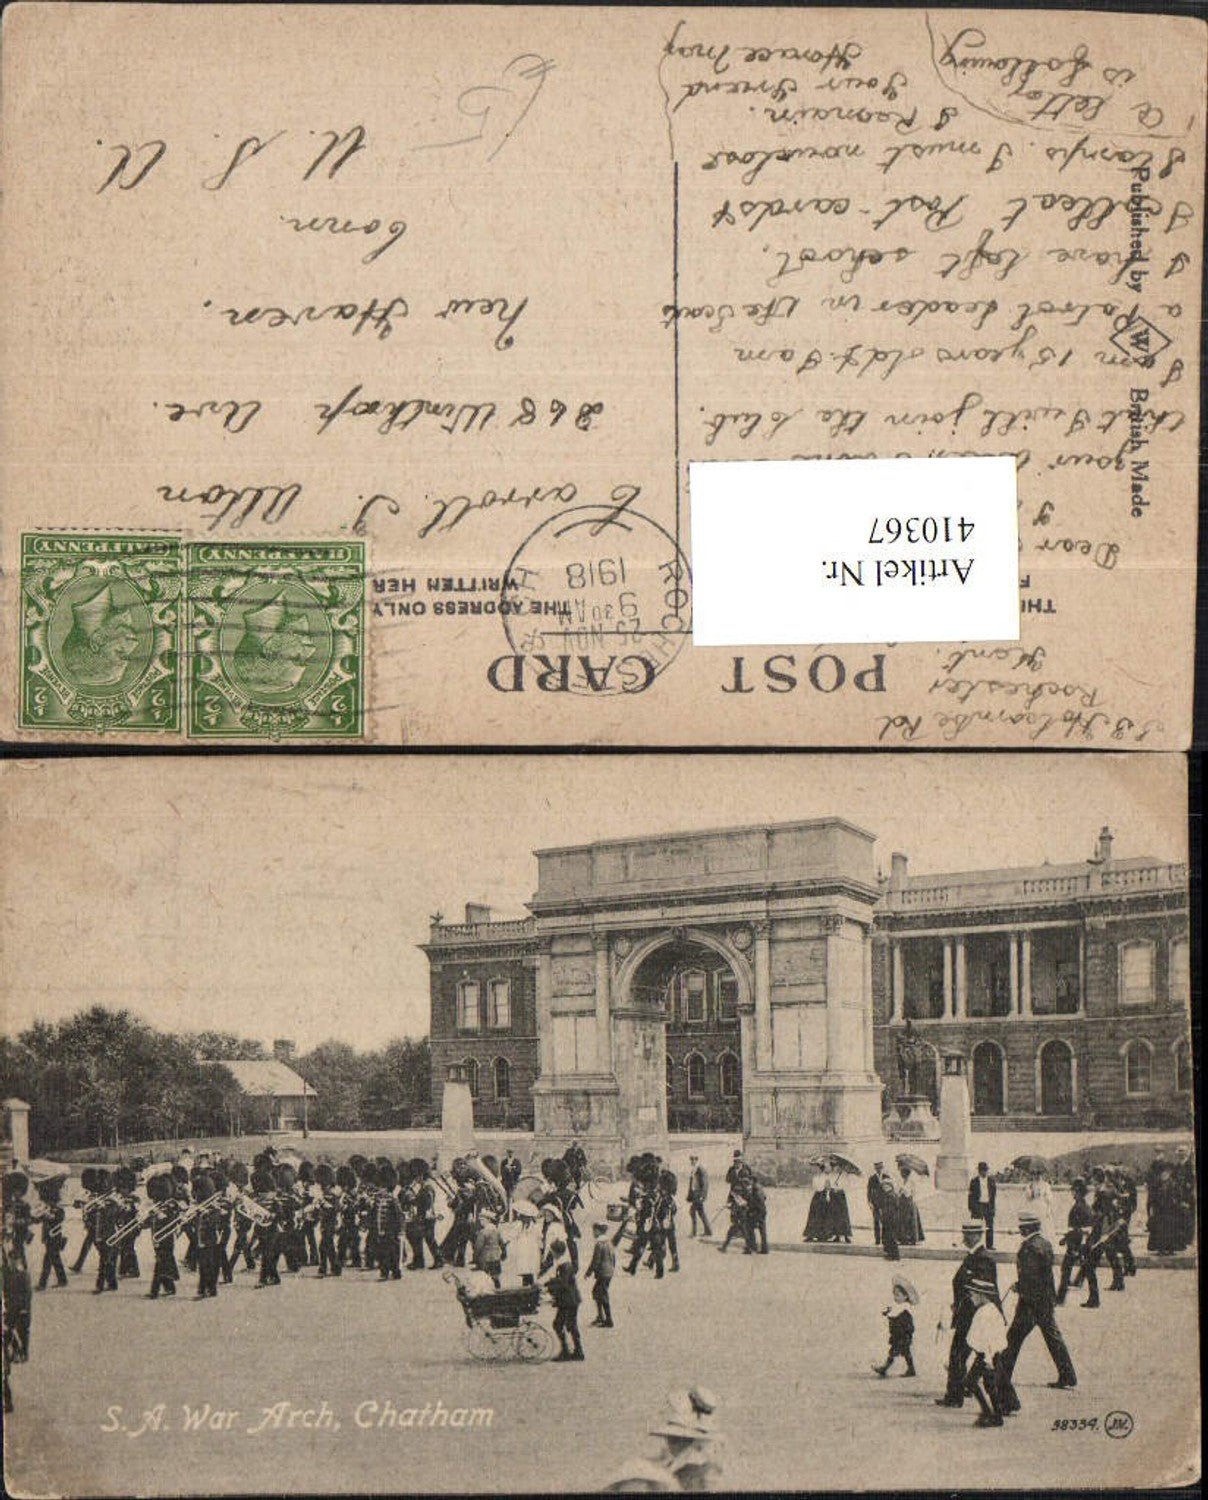 POST CARD
THE ADDRESS ONLY
WRITTEN HER
Published by W British Made
53 Holcombe Rd
Rochester
Kent.
Dear
your
that I will join the club.
I am 15 years old & I am
a Patrol Leader in the Scouts
I have left school.
I collect Post-cards &
Stamps. I must now close
I Remain.
Your Friend
Horace May
A letter
is following
Carroll. I. Alton
268 Winthrop Ave.
New Haven.
Conn.
U. S. A.
ROCHE
9 30 AM
25 NOV
1918
POSTAGE REVENUE
½ ½
HALFPENNY
POSTAGE REVENUE
½ ½
HALFPENNY
Artikel Nr.
410367
S. A. War Arch, Chatham
38334. J.V.